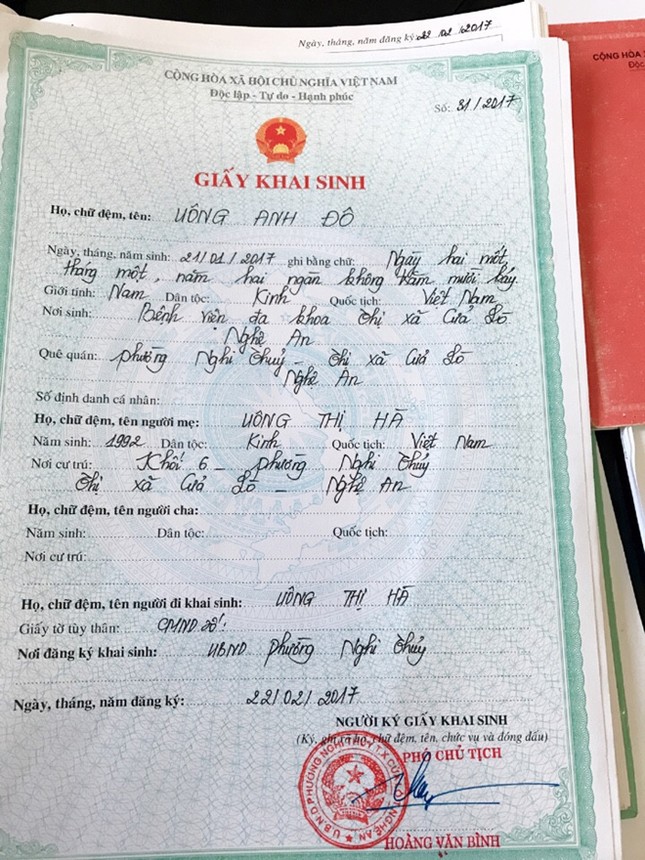 Ngày, tháng, năm đăng ký: 22/02/2017
CỘNG HÒA XÃ HỘI CHỦ NGHĨA VIỆT NAM
Độc lập - Tự do - Hạnh phúc
Số: 31/2017
CỘNG HÒA X
Độc
GIẤY KHAI SINH
Họ, chữ đệm, tên: UÔNG ANH ĐÔ
Ngày, tháng, năm sinh: 21/01/2017 ghi bằng chữ: Ngày hai mốt,
tháng một, năm hai ngàn không trăm mười bảy.
Giới tính: Nam Dân tộc: Kinh Quốc tịch: Việt Nam
Nơi sinh: Bệnh viện đa khoa thị xã Cửa Lò
Nghệ An
Quê quán: phường Nghi Thuỷ - thị xã Cửa Lò
Nghệ An
Số định danh cá nhân:
Họ, chữ đệm, tên người mẹ: UÔNG THỊ HÀ
Năm sinh: 1992 Dân tộc: Kinh Quốc tịch: Việt Nam
Nơi cư trú: Khối 6 - phường Nghi Thủy
thị xã Cửa Lò - Nghệ An
Họ, chữ đệm, tên người cha:
Năm sinh: Dân tộc: Quốc tịch:
Nơi cư trú:
Họ, chữ đệm, tên người đi khai sinh: UÔNG THỊ HÀ
Giấy tờ tùy thân: CMND
Nơi đăng ký khai sinh: UBND phường Nghi Thủy
Ngày, tháng, năm đăng ký: 22/02/2017
NGƯỜI KÝ GIẤY KHAI SINH
(Ký, ghi rõ họ, chữ đệm, tên, chức vụ và đóng dấu)
PHÓ CHỦ TỊCH
U.B.N.D. PHƯỜNG NGHI THỦY T.X CỬA NGHỆ AN
HOÀNG VĂN BÌNH